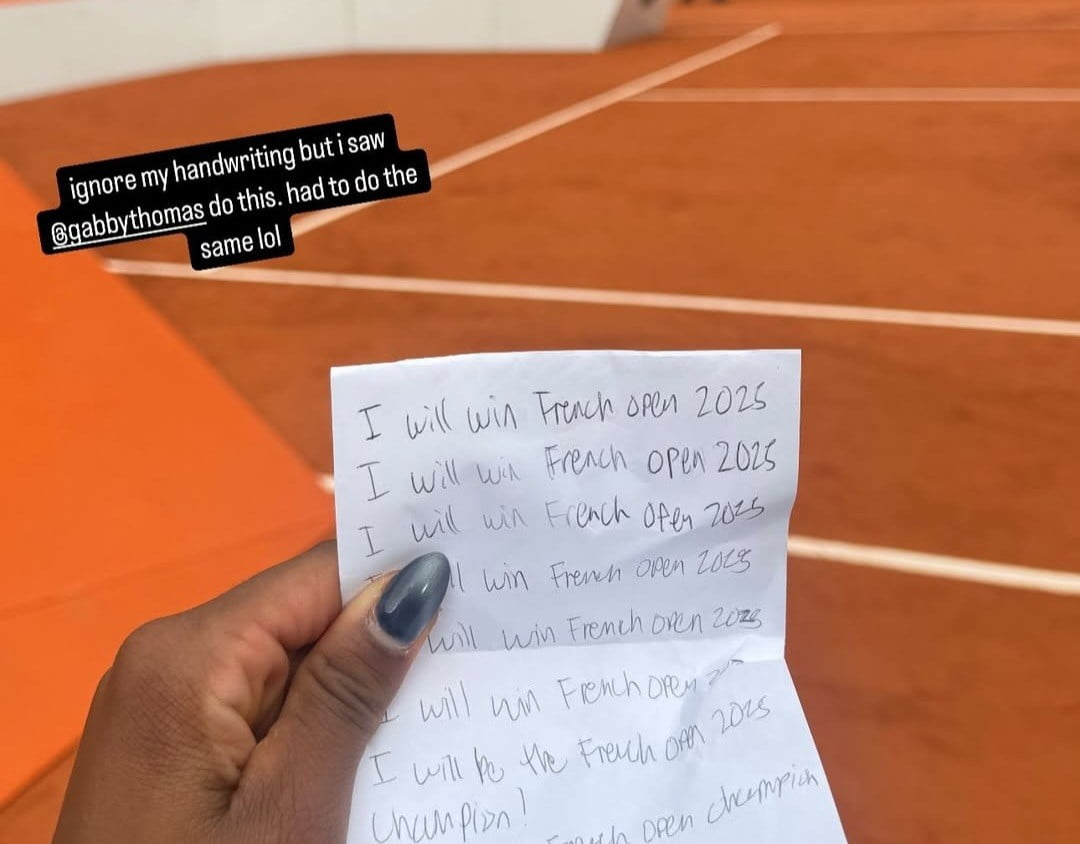 ignore my handwriting but i saw
@gabbythomas do this. had to do the
same lol
I will win French open 2025
I will win French open 2025
I will win French open 2025
win French open 2025
will win French open 2025
I will win French open
I will be the French open 2025
champion!
French open champion